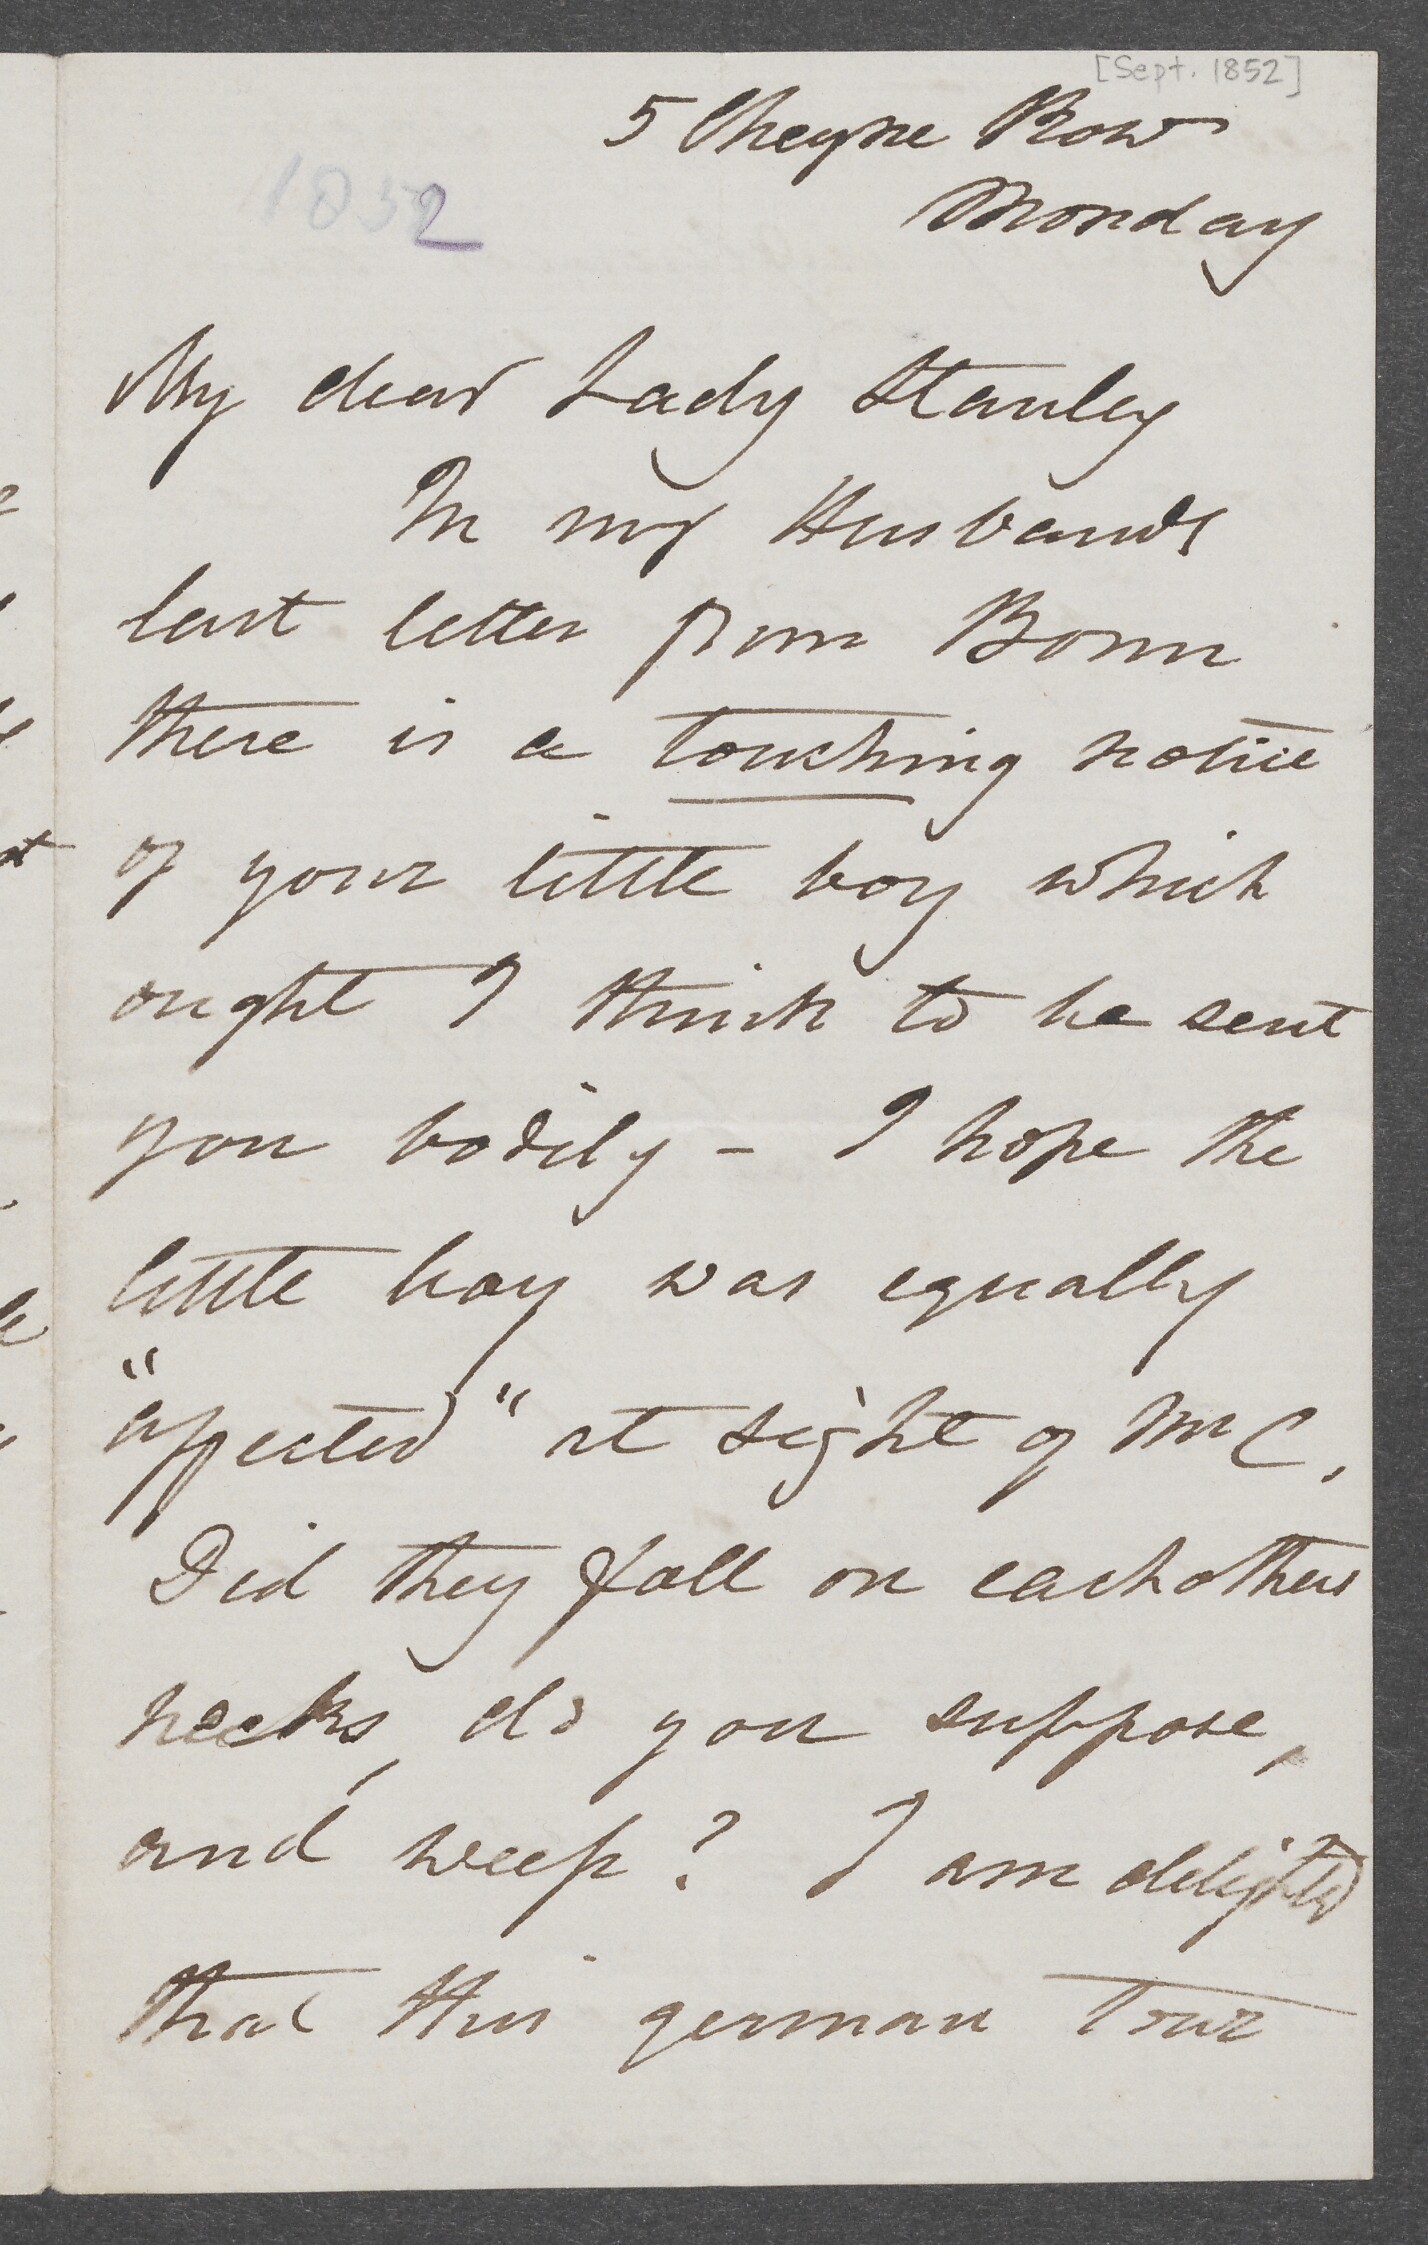 [Sept. 1852]
5 Cheyne Row
1852
Monday
My dear Lady Stanley
In my Husbands
last letter from Bonn
there is a touching notice
of your little boy which
ought I think to be sent
you bodily – I hope the
little boy was equally
"affected" at sight of Mr C.
Did they fall on eachothers
necks, do you suppose,
and weep? I am delighted
that this german Tour